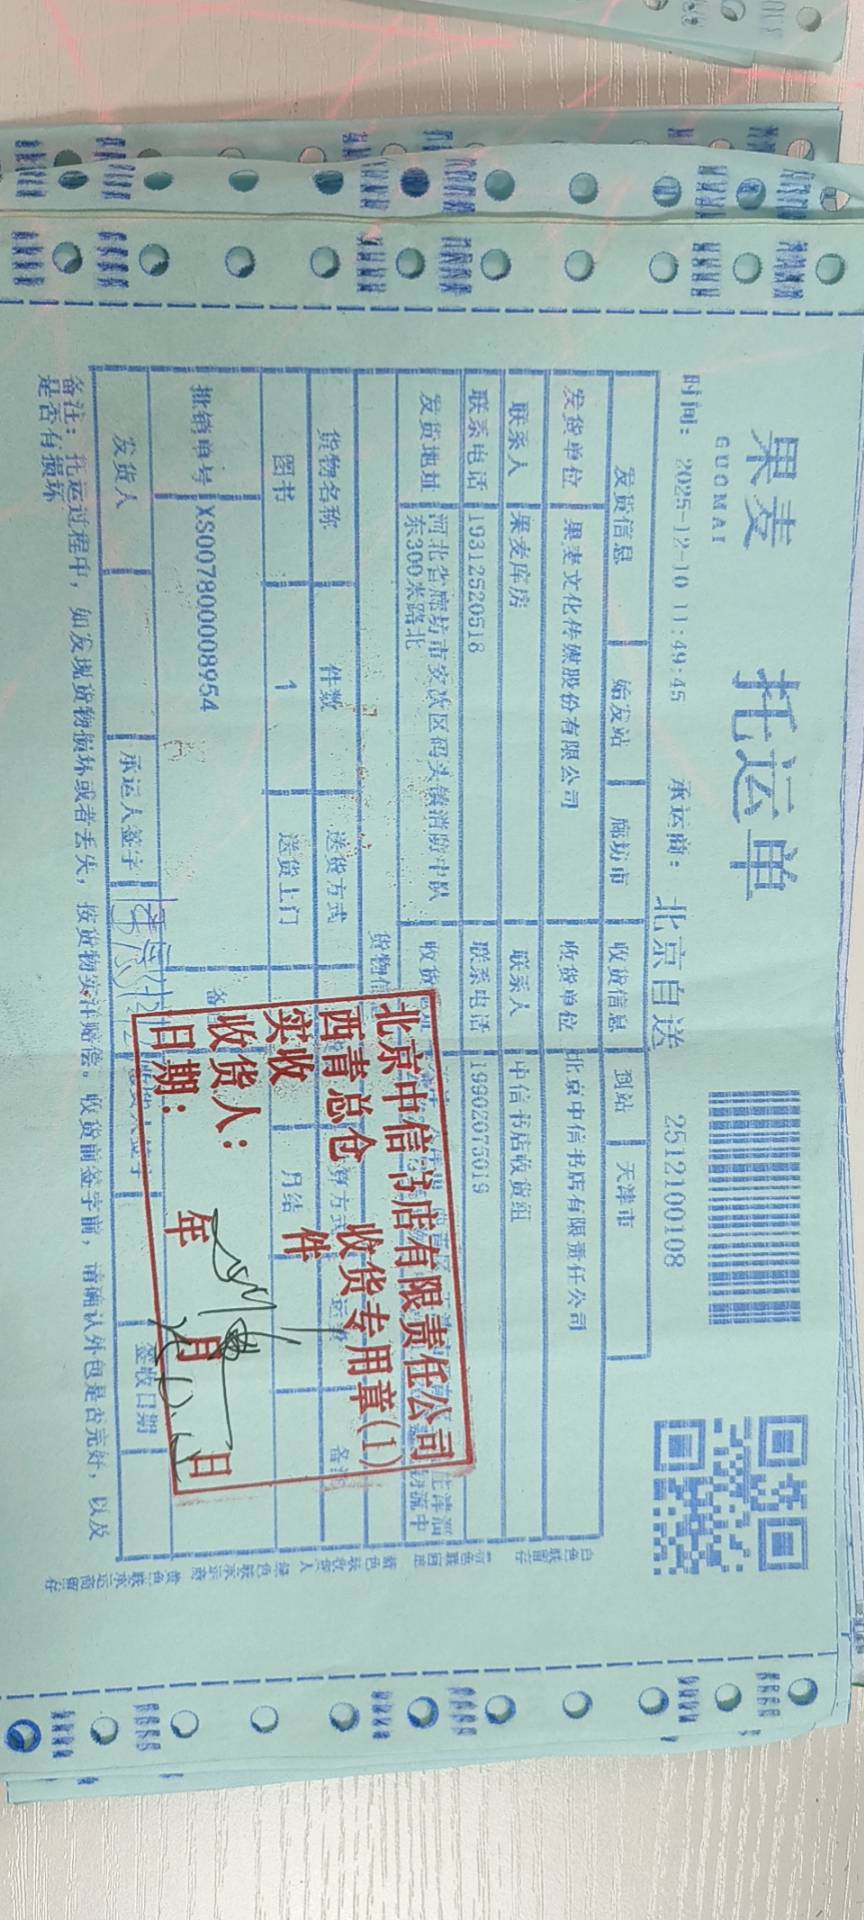 果麦 托运单
GUOMAI
时间: 2025-12-10 11:49:45 承运商: 北京自送 2512100108
发货信息 始发站 廊坊市 收货信息 到站 天津市
发货单位 果麦文化传媒股份有限公司 收货单位 北京中信书店有限责任公司
联系人 果麦库房 联系人 中信书店收货组
联系电话 19312520518 联系电话 19902075019
发货地址 河北省廊坊市安次区码头镇消防中队东300米路北 收货
货物信
货物名称 件数 送货方式 算方式 运 备
图书 1 送货上门 月结
批销单号 XS007800008954 备
发货人 承运人签字 签收日期
备注: 托运过程中, 如发现货物损坏或者丢失, 按货物实洋赔偿。收货前签字前, 请确认外包是否完好, 以及
是否有损坏
北京中信书店有限责任公司
西青总仓 收货专用章(1)
实收 件
收货人:
日期: 年 月 日